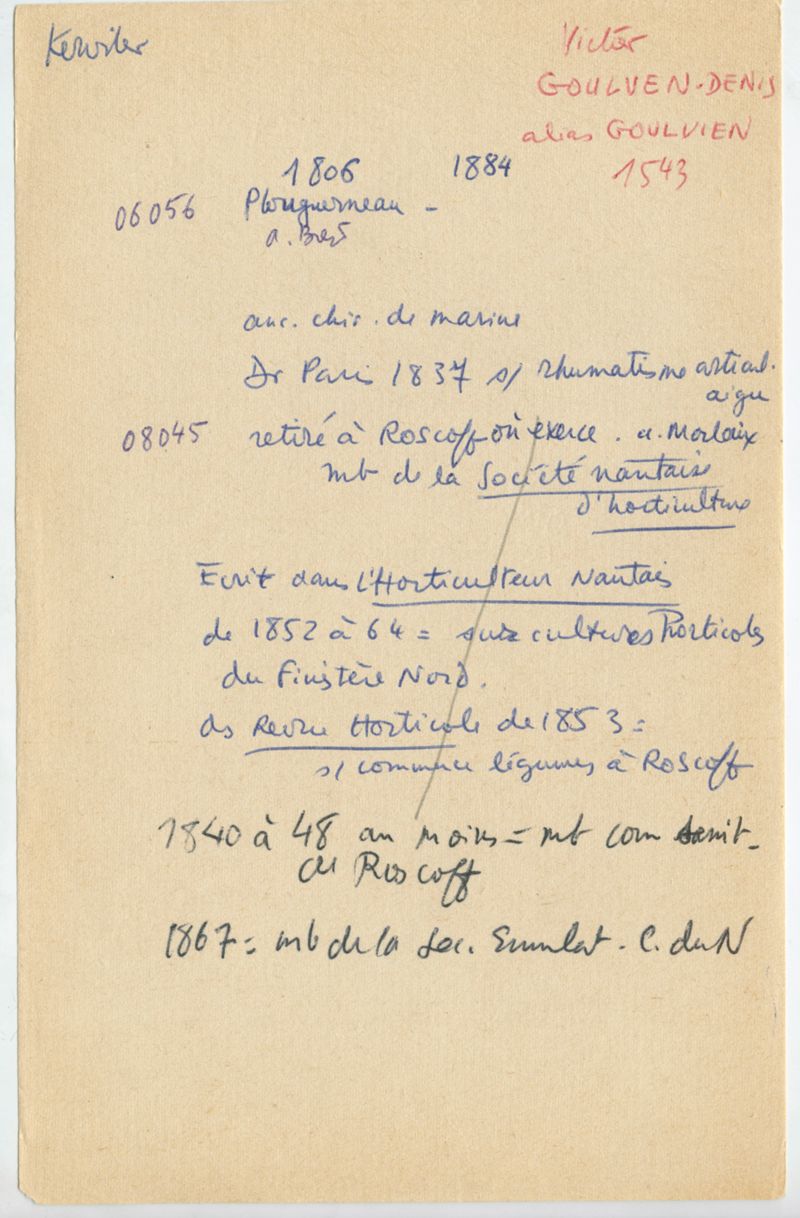 Kerviler
Victor
GOULVEN-DENIS
alias GOULVIEN
1543
1806 1884
06056 Plouguerneau -
a. Brest
anc. chir. de marine
Dr Paris 1837 s/ rhumatisme articul.
aigu
08045 retiré à Roscoff où exerce. a. Morlaix
mb de la Société nantaise
d'horticulture
Ecrit dans l'Horticulteur Nantais
de 1852 à 64 = cultures horticoles
du Finistère Nord.
ds Revue Horticole de 1853 =
s/ commerce légumes à Roscoff
1840 à 48 au moins = mb com sanit.
de Roscoff
1867 = mb de la Soc. Emulat. C. du N